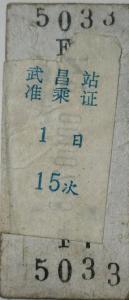 5033
F
武昌站
准乘证
1日
15次
5033